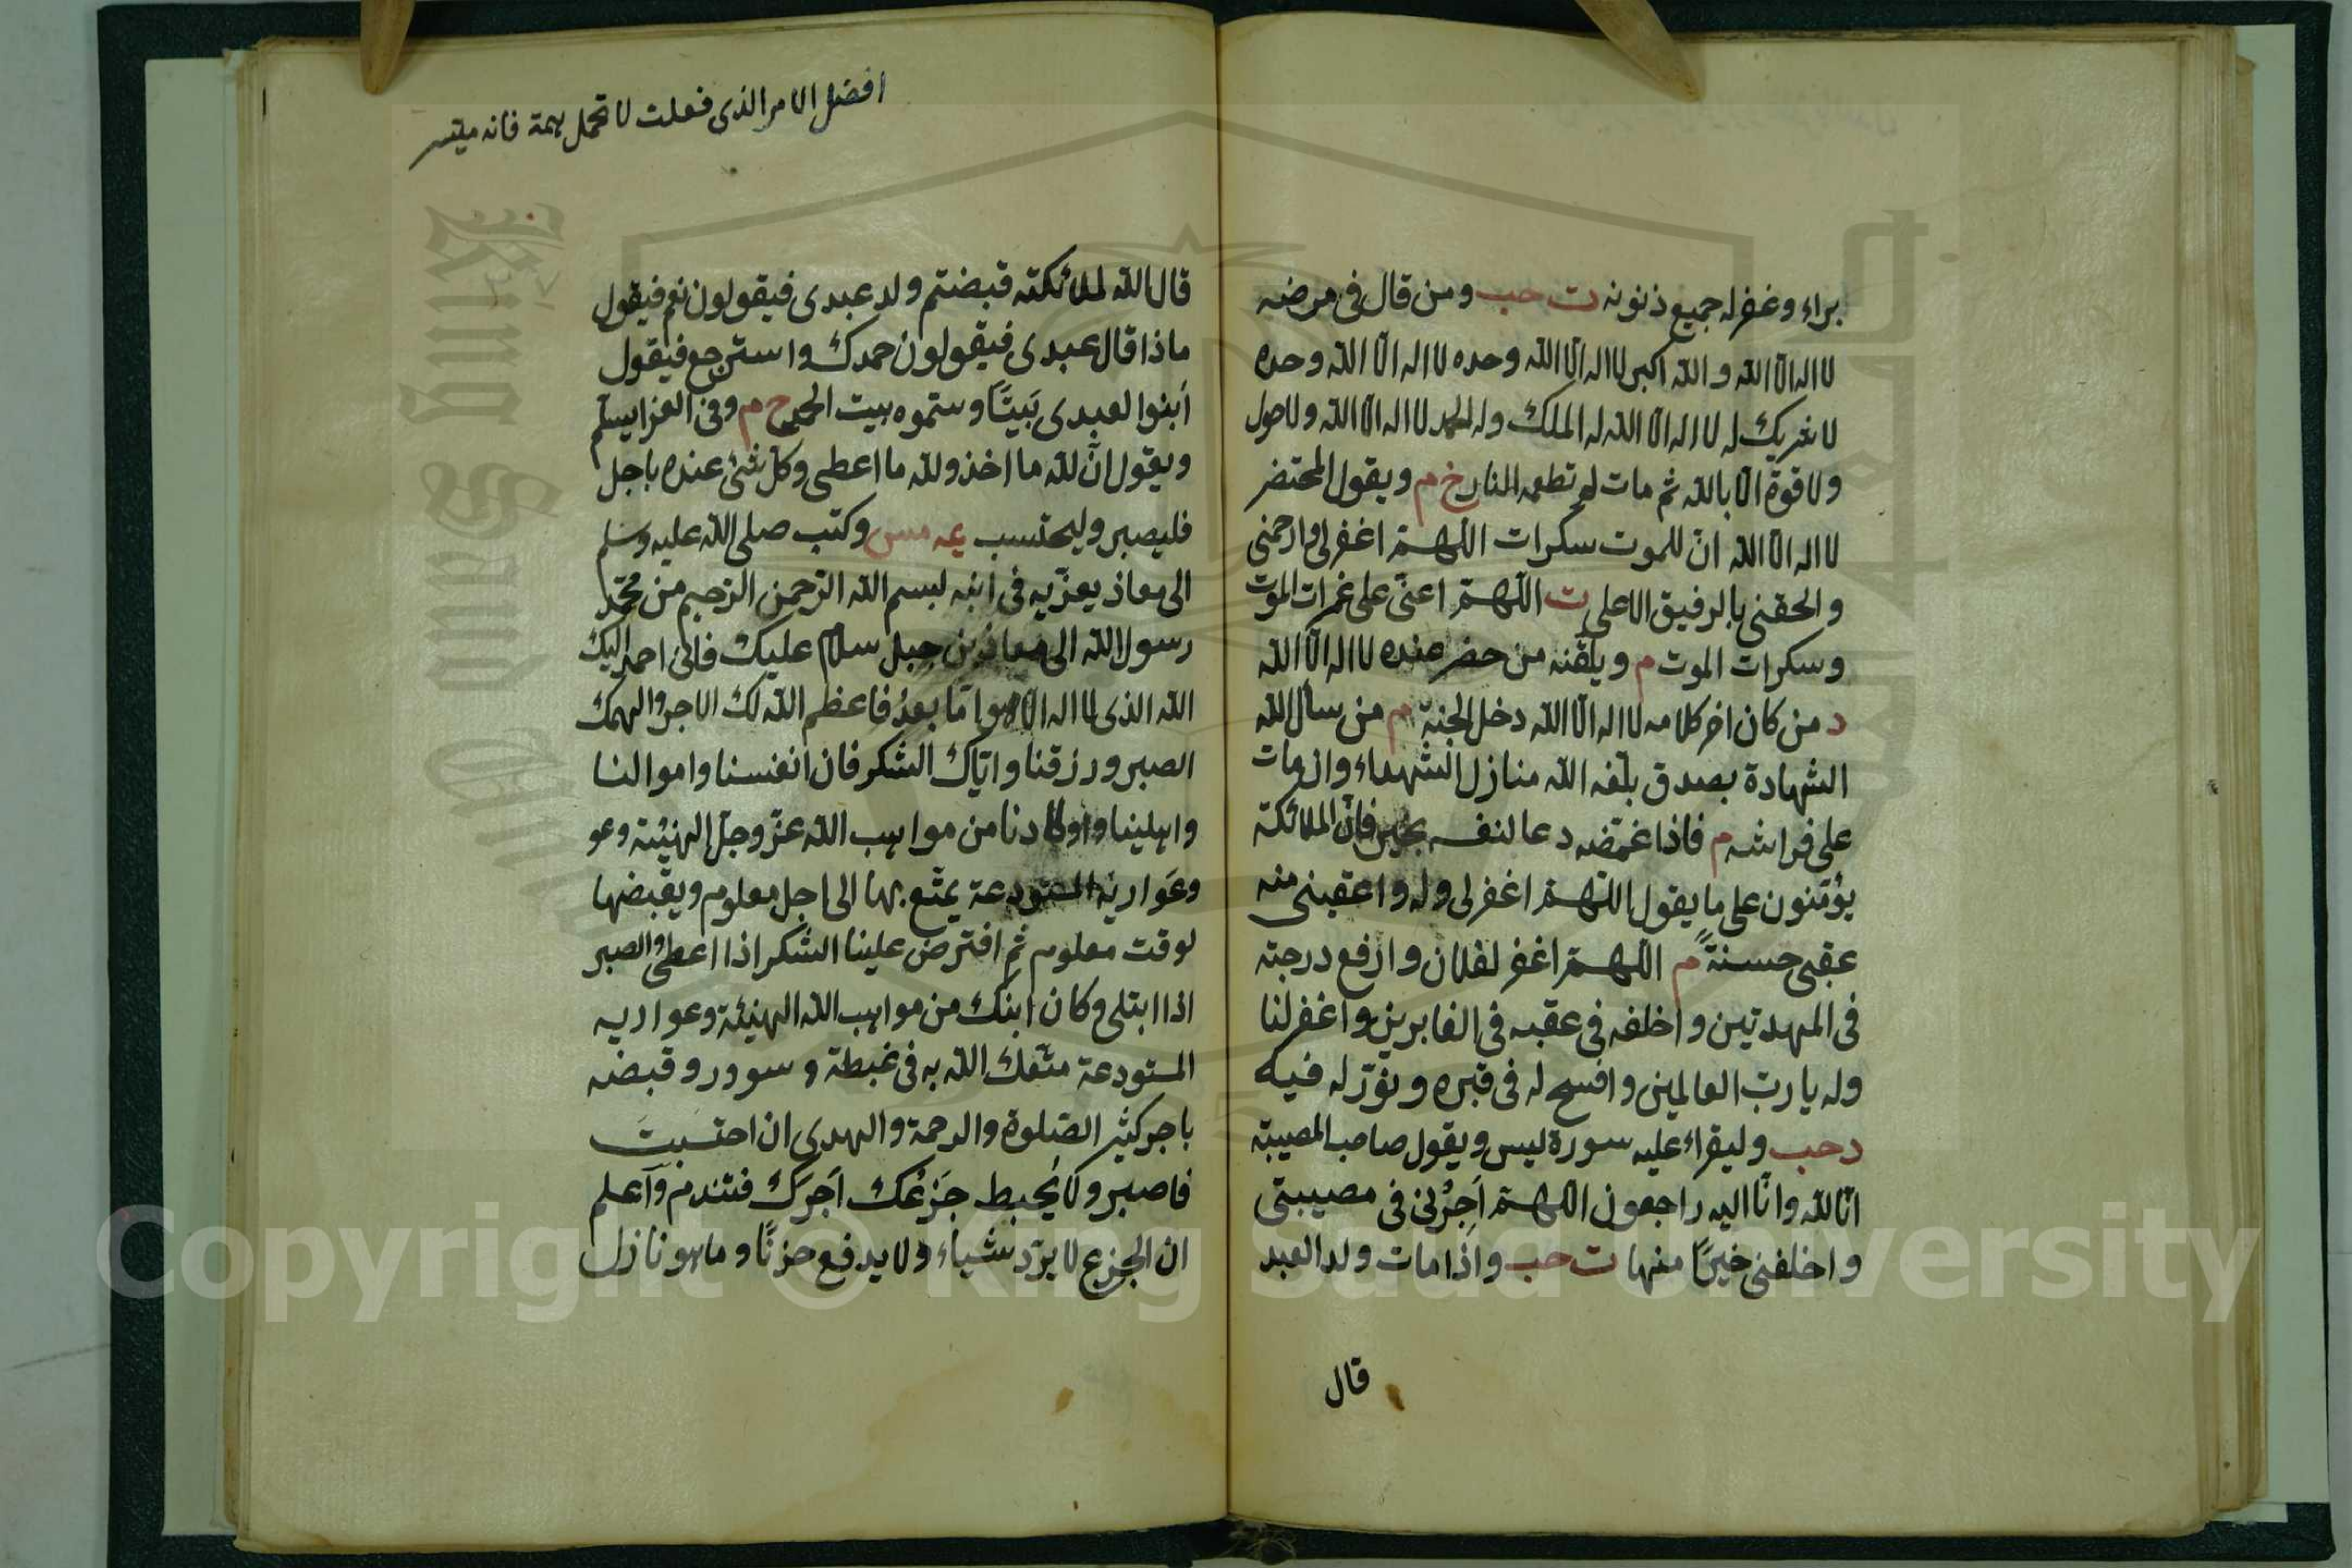 براء وغفر له جميع ذنوبه ت حب ومن قال فى مرضه
لا اله الا الله والله اكبر لا اله الا الله وحده لا اله الا الله وحده
لا شريك له لا اله الا الله له الملك وله الحمد لا اله الا الله ولا حول
ولا قوة الا بالله ثم مات لم تطعمه النار خ م ويقول المحتضر
لا اله الا الله ان للموت سكرات اللهم اغفرلى وارحمنى
والحقنى بالرفيق الاعلى ت اللهم اعنى على غمرات الموت
وسكرات الموت م ويلقنه من حضر عنده لا اله الا الله
د من كان اخر كلامه لا اله الا الله دخل الجنة م من سأل الله
الشهادة بصدق بلغه الله منازل الشهداء وان مات
على فراشه م فاذا غمضه دعا لنفسه بخير فان الملائكة
يؤمنون على ما يقول اللهم اغفرلى وله واعقبنى منه
عقبى حسنةً م اللهم اغفر لفلان وارفع درجته
فى المهديين واخلفه فى عقبه فى الغابرين واغفرلنا
وله يا رب العالمين وافسح له فى قبره ونور له فيه
د حب وليقراء عليه سورة ليس ويقول صاحب المصيبة
انا لله وانا اليه راجعون اللهم اَجِرْنى فى مصيبتى
واخلفنى خيرًا منها ت حب واذا مات ولد العبد
قال
افضل الامر الذى فعلت لا تحمل بهمة فانه ميتسر
قال الله لملائكته قبضتم ولد عبدى فيقولون نعم فيقول
ماذا قال عبدى فيقولون حمدك واسترجع فيقول
ابنوا لعبدى بَيتًا وسموه بيت الحمد ح م وفى العزا يسلم
ويقول انّ لله ما اخذ ولله ما اعطى وكل شئ عنده باجل
فليصبر وليحتسب عه مس وكتب صلى الله عليه وسلم
الى معاذ يعزّيه فى ابنه لبسم الله الرّحمن الرّحيم من محمّد
رسول الله الى معاذ بن جبل سلام عليك فانى احمد اليك
الله الذى لا اله الا هو امّا بعدُ فاعظم الله لك الاجر والهمك
الصبر ورزقنا واتاك الشكر فان انفسنا واموالنا
واهلينا واولادنا من مواهب الله عزّ وجلّ الهنيئة وعو
وعَواريه المستودعة يمتّع بها الى اجل معلوم ويقبضها
لوقت معلوم ثم افترض علينا الشكر اذا اعطى والصبر
اذا ابتلى وكان ابنك من مواهب الله الهنيئة وعواريه
المستودعة متعك الله به فى غبطة وسوور وقبضه
باجر كثير الصّلوة والرحمة والهدى ان احتسبتَ
فاصبر ولا يُحبط جَزَعُك اَجرَك فتندم وآعلم
ان الجزع لا يردّ شياء ولا يدفع حزنًا وما هو نازل